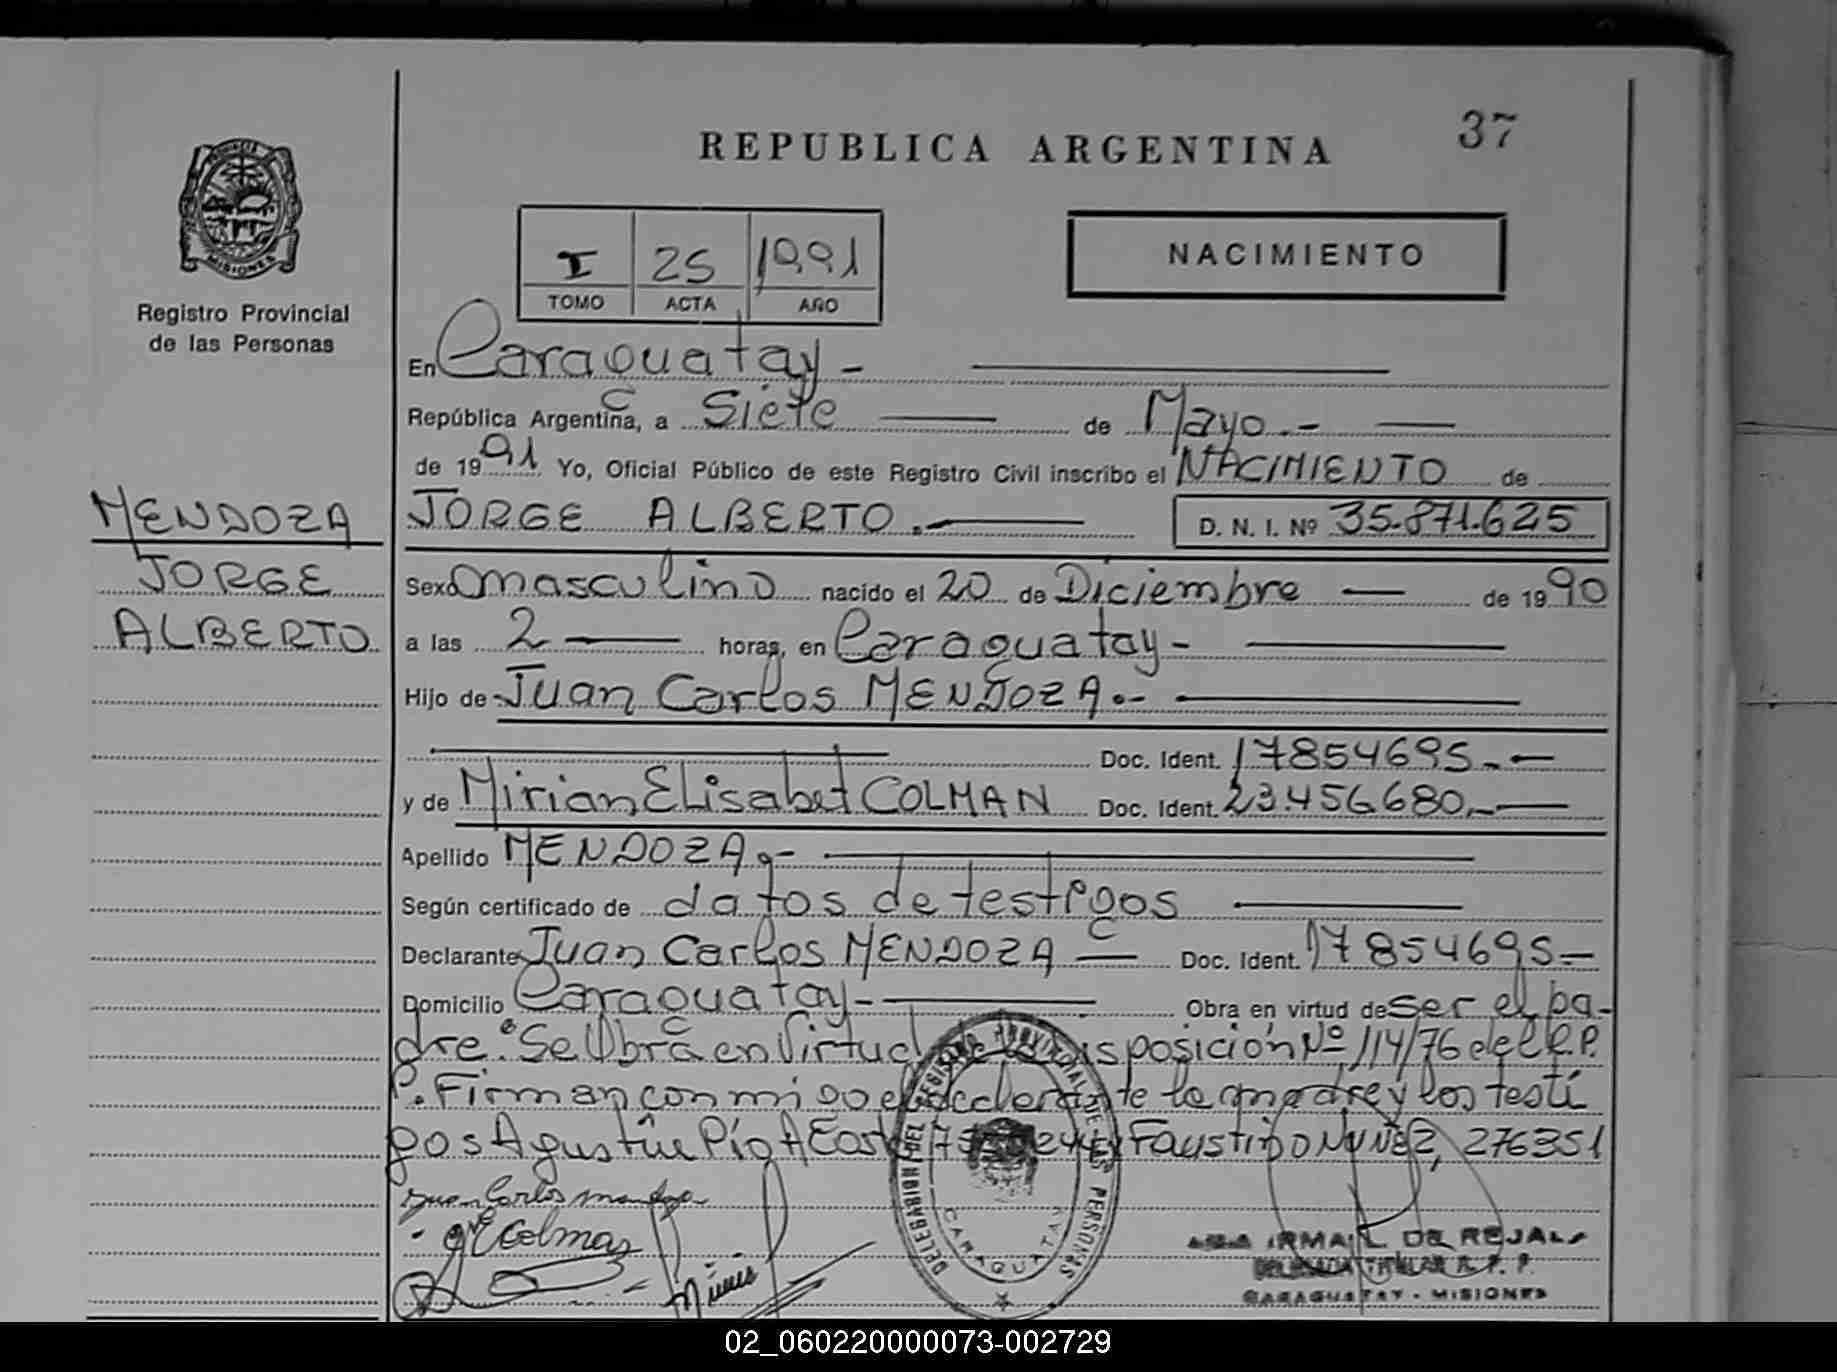 37
REPUBLICA ARGENTINA
MISIONES
Registro Provincial
de las Personas
I 25 1991
TOMO ACTA AÑO
NACIMIENTO
En Caraguatay -
República Argentina, a Siete de Mayo.-
de 1991. Yo, Oficial Público de este Registro Civil inscribo el NACIMIENTO de
JORGE ALBERTO.- D. N. I. Nº 35.871.625
MENDOZA
JORGE
ALBERTO
Sexo masculino nacido el 20 de Diciembre de 1990
a las 2 horas, en Caraguatay -
Hijo de Juan Carlos MENDOZA.-
Doc. Ident. 17854695.-
y de Mirian Elisabet COLMAN Doc. Ident. 23.456.680.-
Apellido MENDOZA.-
Según certificado de datos de testigos
Declarante Juan Carlos MENDOZA Doc. Ident. 17854695-
Domicilio Caraguatay - Obra en virtud de ser el pa-
dre. Se Obra en Virtud de la Disposición Nº 114/76 del R.P.
P. Firman conmigo el declarante la madre y los testi
gos Agustín Pío y Faustino NUÑEZ, 276351
Juan Carlos Mendoza
Colman
DELEGACION DEL REGISTRO PROVINCIAL DE LAS PERSONAS
CARAGUATAY
IRMA DE REJALA
DELEGADA TITULAR R. P. P.
CARAGUATAY - MISIONES
02_060220000073-002729